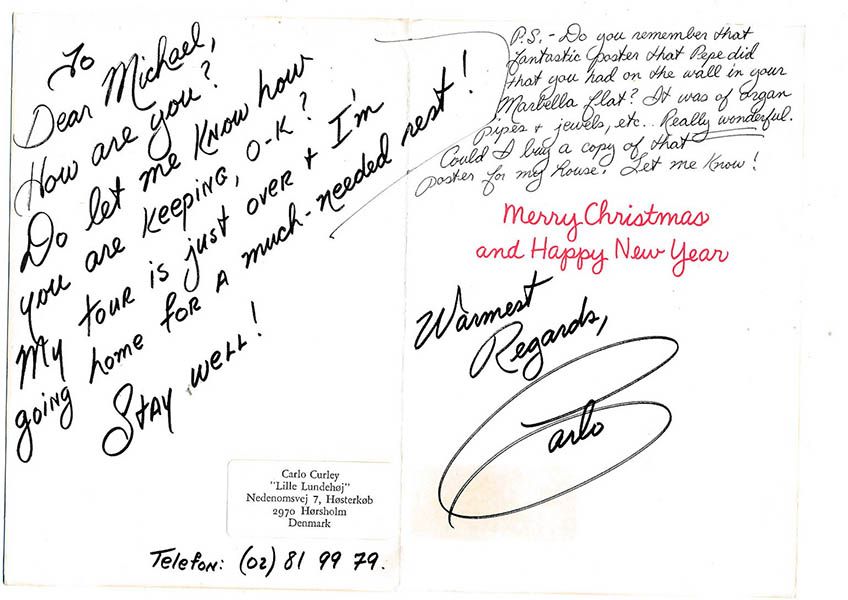 To
Dear Michael,
How are you?
Do let me know how
you are keeping, O-K?
My tour is just over + I'm
going home for a much-needed rest!
Stay well!
Carlo Curley
"Lille Lundehøj"
Nedenomsvej 7, Høsterkøb
2970 Hørsholm
Denmark
Telefon: (02) 81 99 79.
P.S. - Do you remember that
fantastic poster that Pepe did
that you had on the wall in your
Marbella flat? It was of organ
pipes + jewels, etc.. Really wonderful.
Could I buy a copy of that
poster for my house. Let me know!
Merry Christmas
and Happy New Year
Warmest
Regards,
Carlo